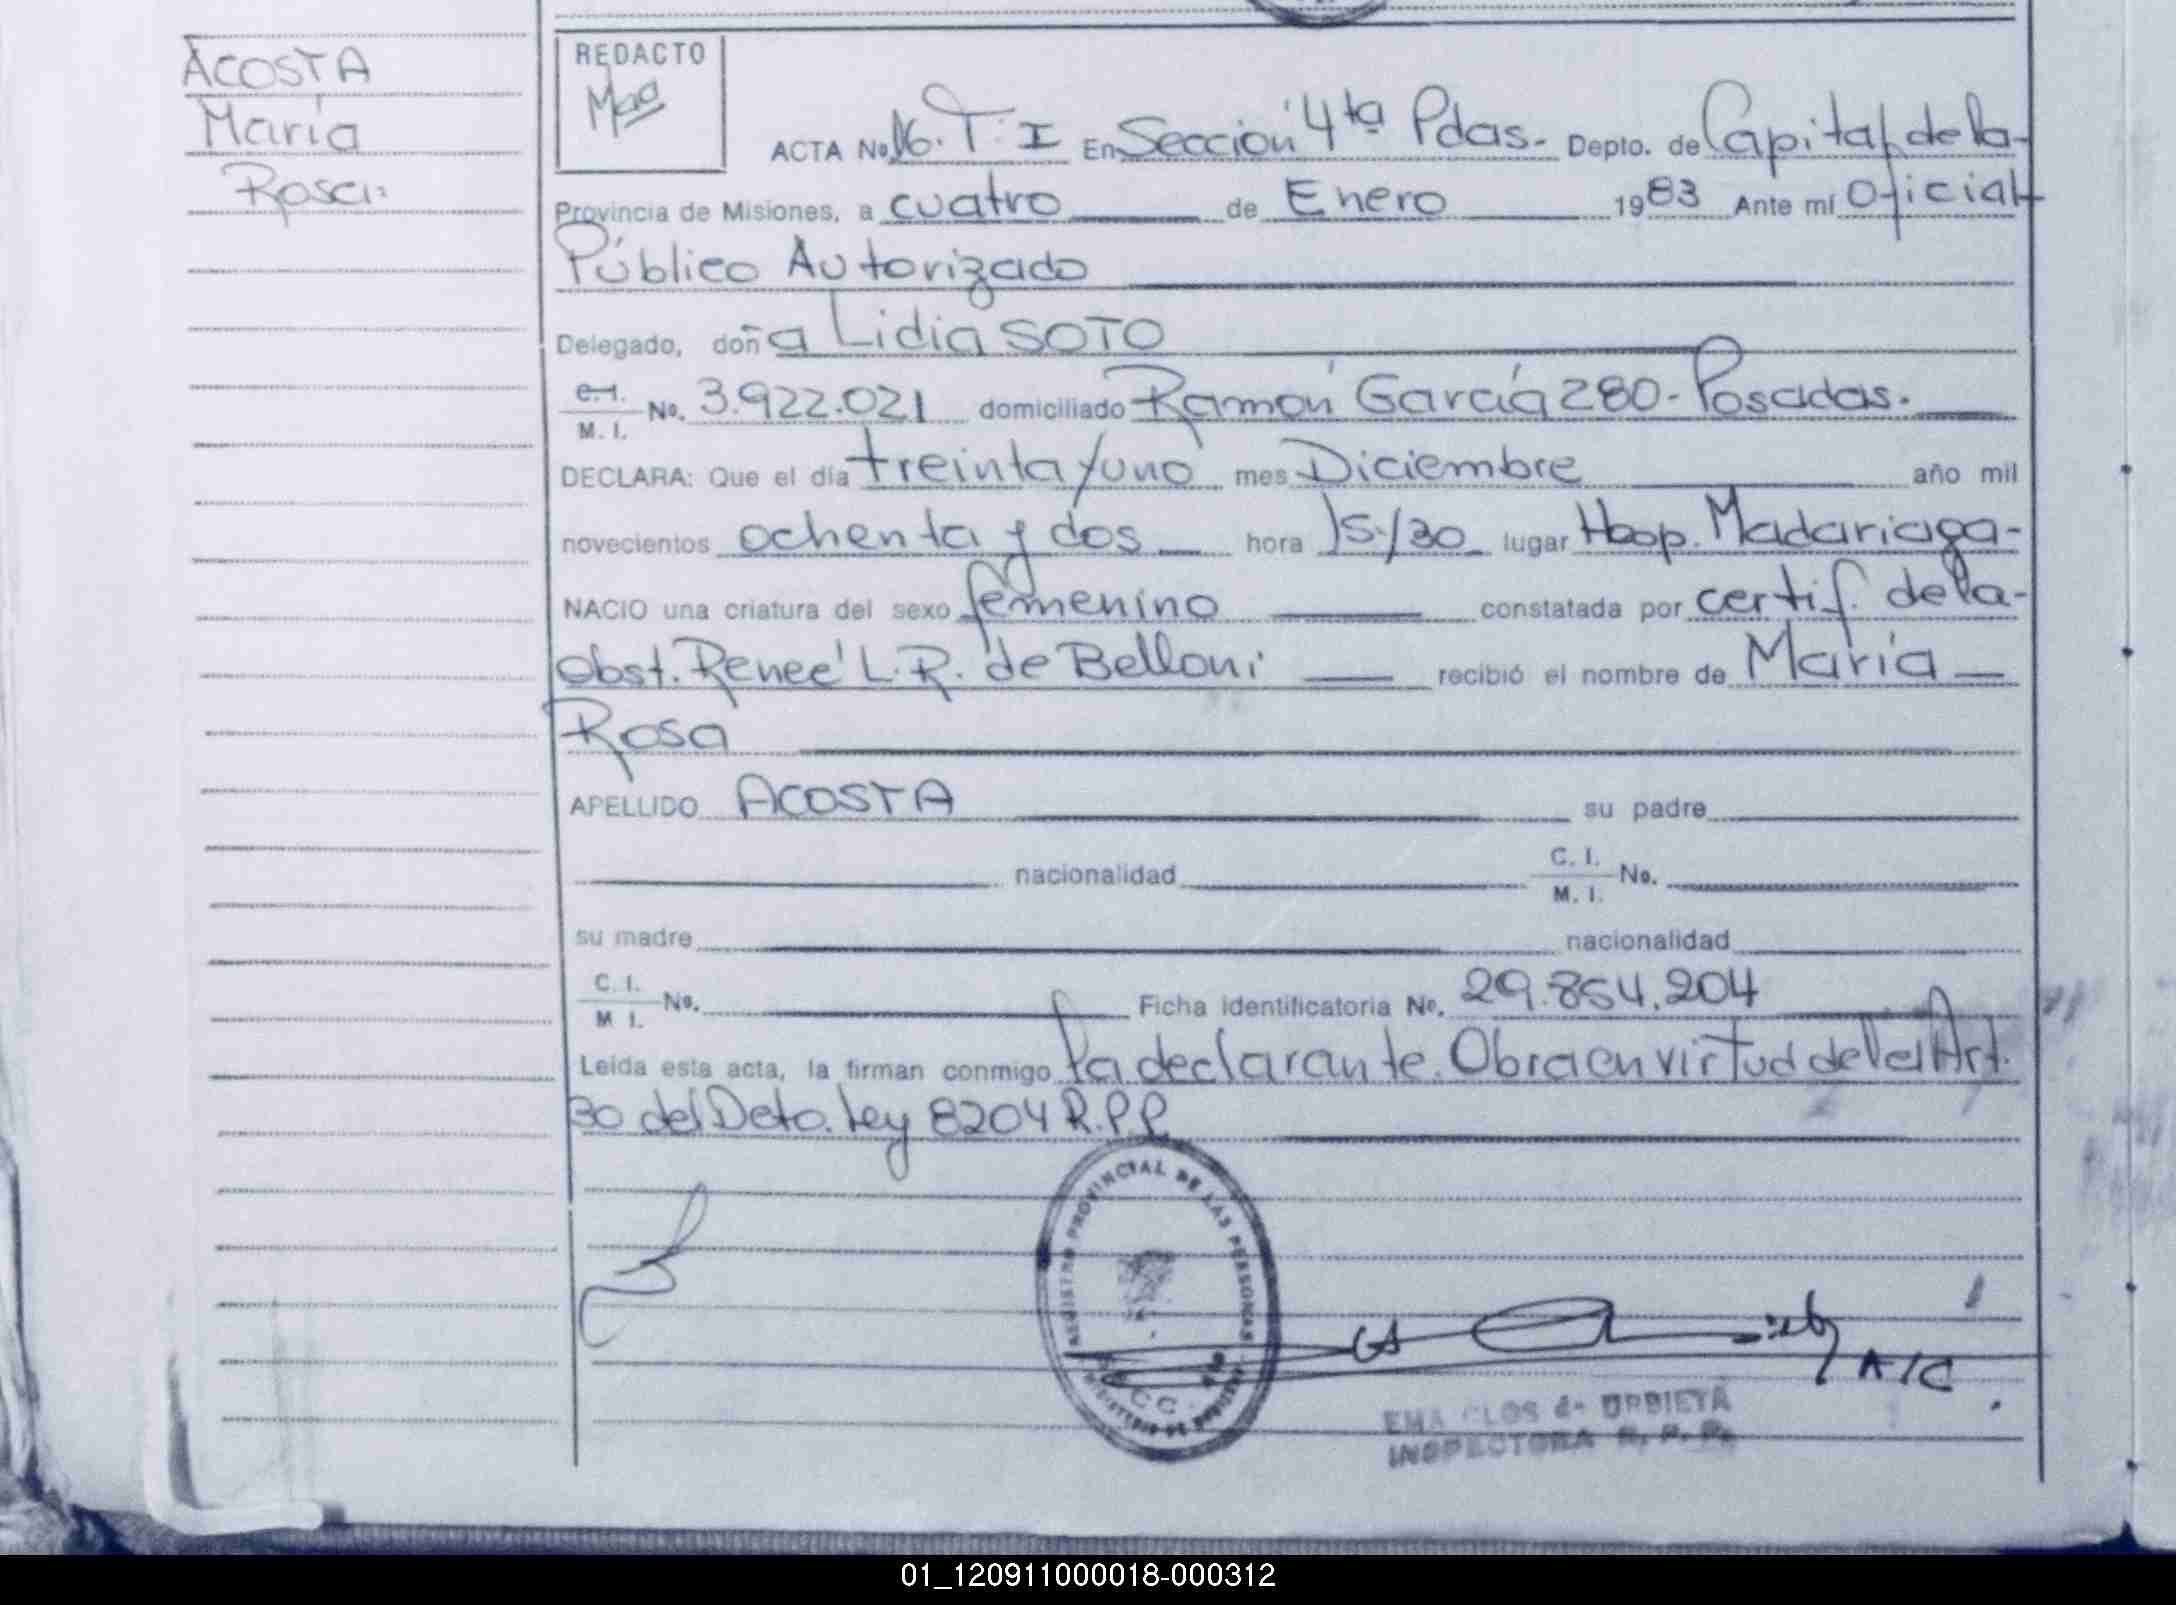 ACOSTA
María
Rosa:
REDACTO
ACTA No. 16. T: I En Sección 4ta Pdas. Depto. de Capital de la
Provincia de Misiones, a cuatro de Enero 1983 Ante mí Oficial
Público Autorizado
Delegado, doña Lidia SOTO
C.I. M. I. No. 3.922.021 domiciliado Ramón García 280 - Posadas.
DECLARA: Que el día treinta y uno mes Diciembre año mil
novecientos ochenta y dos hora 15/30 lugar Hosp. Madariaga
NACIO una criatura del sexo femenino constatada por certif. de la
Obst. Reneé L. R. de Belloni recibió el nombre de María
Rosa
APELLIDO ACOSTA su padre
nacionalidad C. I. M. I. No.
su madre nacionalidad
C. I. M I. No. Ficha identificatoria No. 29.854.204
Leída esta acta, la firman conmigo la declarante. Obra en virtud del Art.
30 del Deto. Ley 8204 R.P.P.
REGISTRO PROVINCIAL DE LAS PERSONAS
A/C
EMA CLOS de URBIETA
INSPECTORA R. P. P.
01_120911000018-000312